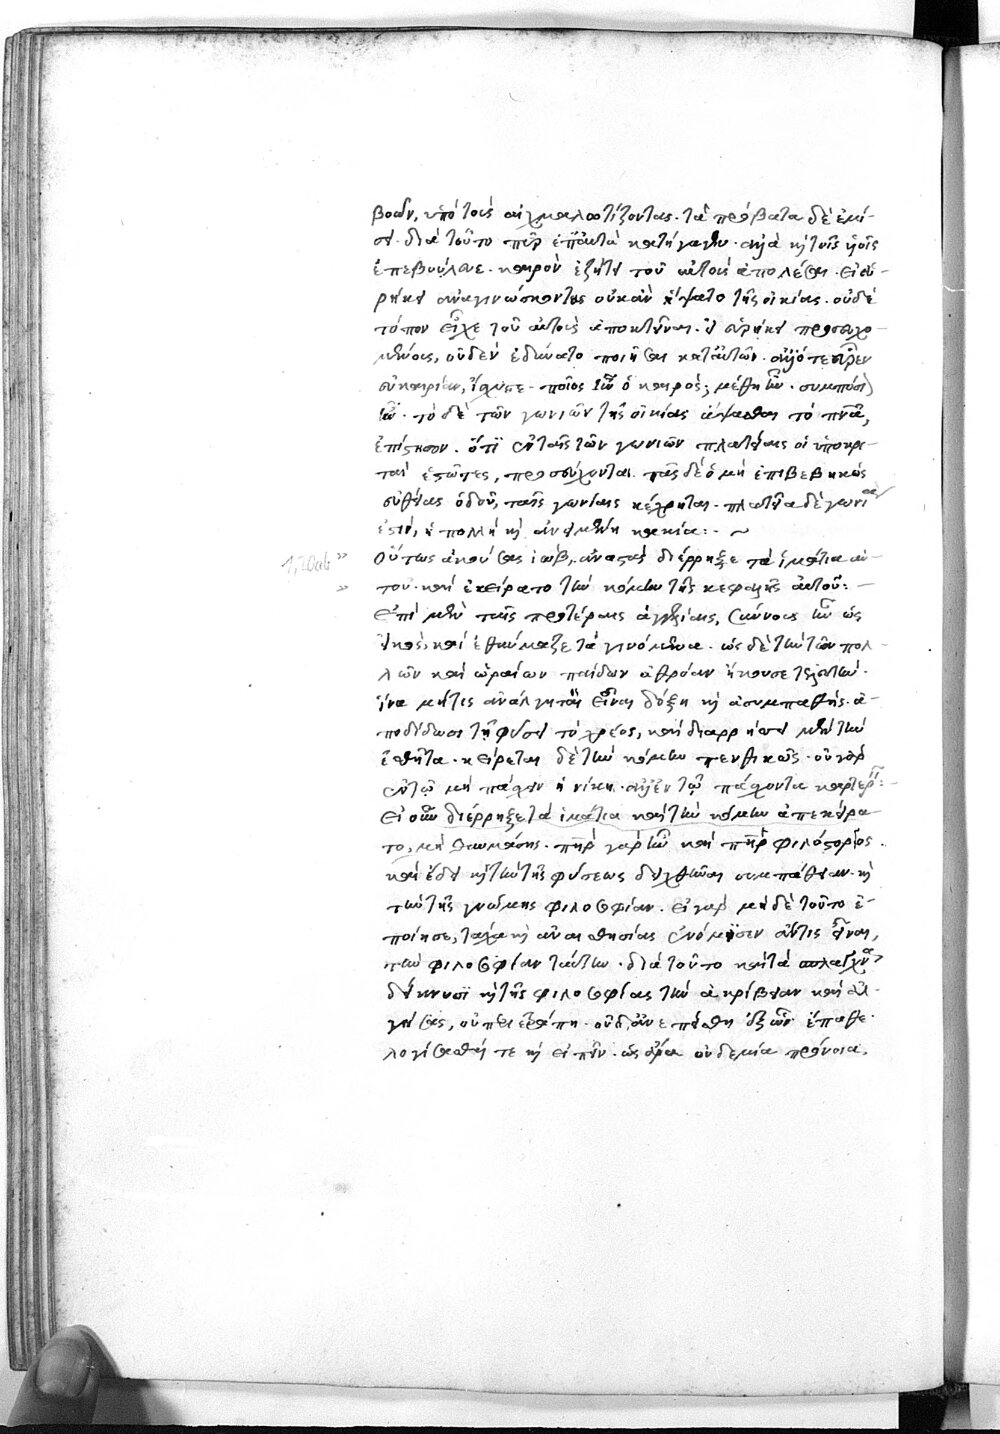 βοῶν, ὑπὸ τοὺς αἰχμαλωτίζοντας. τὰ πρόβατα δὲ ἐμί-
σει. διὰ τοῦτο πῦρ ἐπ' αὐτὰ κατήγαγεν. ἀλλὰ καὶ τοῖς υἱοῖς
ἐπεβούλευε. καιρὸν ἐζήτει τοῦ αὐτοὺς ἀπολέσαι. εἰ εὑ-
ρήκει ἀναγινώσκοντας οὐκ ἂν ἥψατο τῆς οἰκίας. οὐδὲ
τόπον εἶχε τοῦ αὐτοὺς ἀποκτεῖναι. εἰ εὑρήκει προσευχο-
μένους, οὐδὲν ἐδύνατο ποιῆσαι κατ' αὐτῶν. ἀλλ' ὅτε εὗρεν
εὐκαιρίαν, ἴσχυσε. ποῖος ἦν ὁ καιρός; μέθη ἦν. συμπόσιον
ἦν. τὸ δὲ τῶν γωνιῶν τῆς οἰκίας ἅψασθαι τὸ πνεῦμα,
ἐπίστησον. ὅτι ἐν ταῖς τῶν γωνιῶν πλατείαις οἱ ὑποκρι-
ταὶ ἑστῶτες, προσεύχονται. πᾶς δὲ ὁ μὴ ἐπιβεβηκὼς
εὐθείας ὁδοῦ, ταῖς γωνίαις κέχρηται. πλατεῖα δὲ γωνία
ἐστὶν, ἡ πολλὴ καὶ ἀνειμένη κακία: ~
1,20ab » Οὕτως ἀκούσας ἰώβ, ἀναστὰς διέρρηξε τὰ ἱμάτια αὐ-
» τοῦ. καὶ ἐκείρατο τὴν κόμην τῆς κεφαλῆς αὐτοῦ: —
Ἐπὶ μὲν ταῖς προτέραις ἀγγελίαις, σύννους ἦν ὡς
εἰκὸς, καὶ ἐθαύμαζε τὰ γινόμενα. ὡς δὲ τὴν τῶν πολ-
λῶν καὶ ὡραίων παίδων ἀθρόαν ἤκουσε τελευτὴν.
ἵνα μήτις ἀνάλγητος εἶναι δόξῃ καὶ ἀσυμπαθής. ἀ-
ποδίδωσι τῇ φύσει τὸ χρέος, καὶ διαρρήσσει μὲν τὴν
ἐσθῆτα. κείρεται δὲ τὴν κόμην πενθικῶς. οὐ γὰρ
ἐν τῷ μὴ πάσχειν ἡ νίκη. ἀλλ' ἐν τῷ πάσχοντα καρτερεῖν: —
Εἰ οὖν διέρρηξε τὰ ἱμάτια καὶ τὴν κόμην ἀπεκείρα-
το, μὴ θαυμάσῃς. πατὴρ γὰρ ἦν καὶ πατὴρ φιλόστοργος.
καὶ ἔδει καὶ τὴν τῆς φύσεως δειχθῆναι συμπάθειαν. καὶ
τὴν τῆς γνώμης φιλοσοφίαν. εἰ γὰρ μὴ δὲ τοῦτο ἐ-
ποίησε, τάχα καὶ ἀναισθησίας ἐνόμισεν ἄν τις εἶναι,
τὴν φιλοσοφίαν ταύτην. διὰ τοῦτο καὶ τὰ σπλάγχνα
δείκνυσι καὶ τῆς φιλοσοφίας τὴν ἀκρίβειαν καὶ ἀλ-
γήσας, οὐ περιετράπη. οὐδ' ἀνεπείσθη ἐξ ὧν ἔπαθε.
λογίσασθαί τε καὶ εἰπεῖν. ὡς ἄρα οὐδεμία πρόνοια,